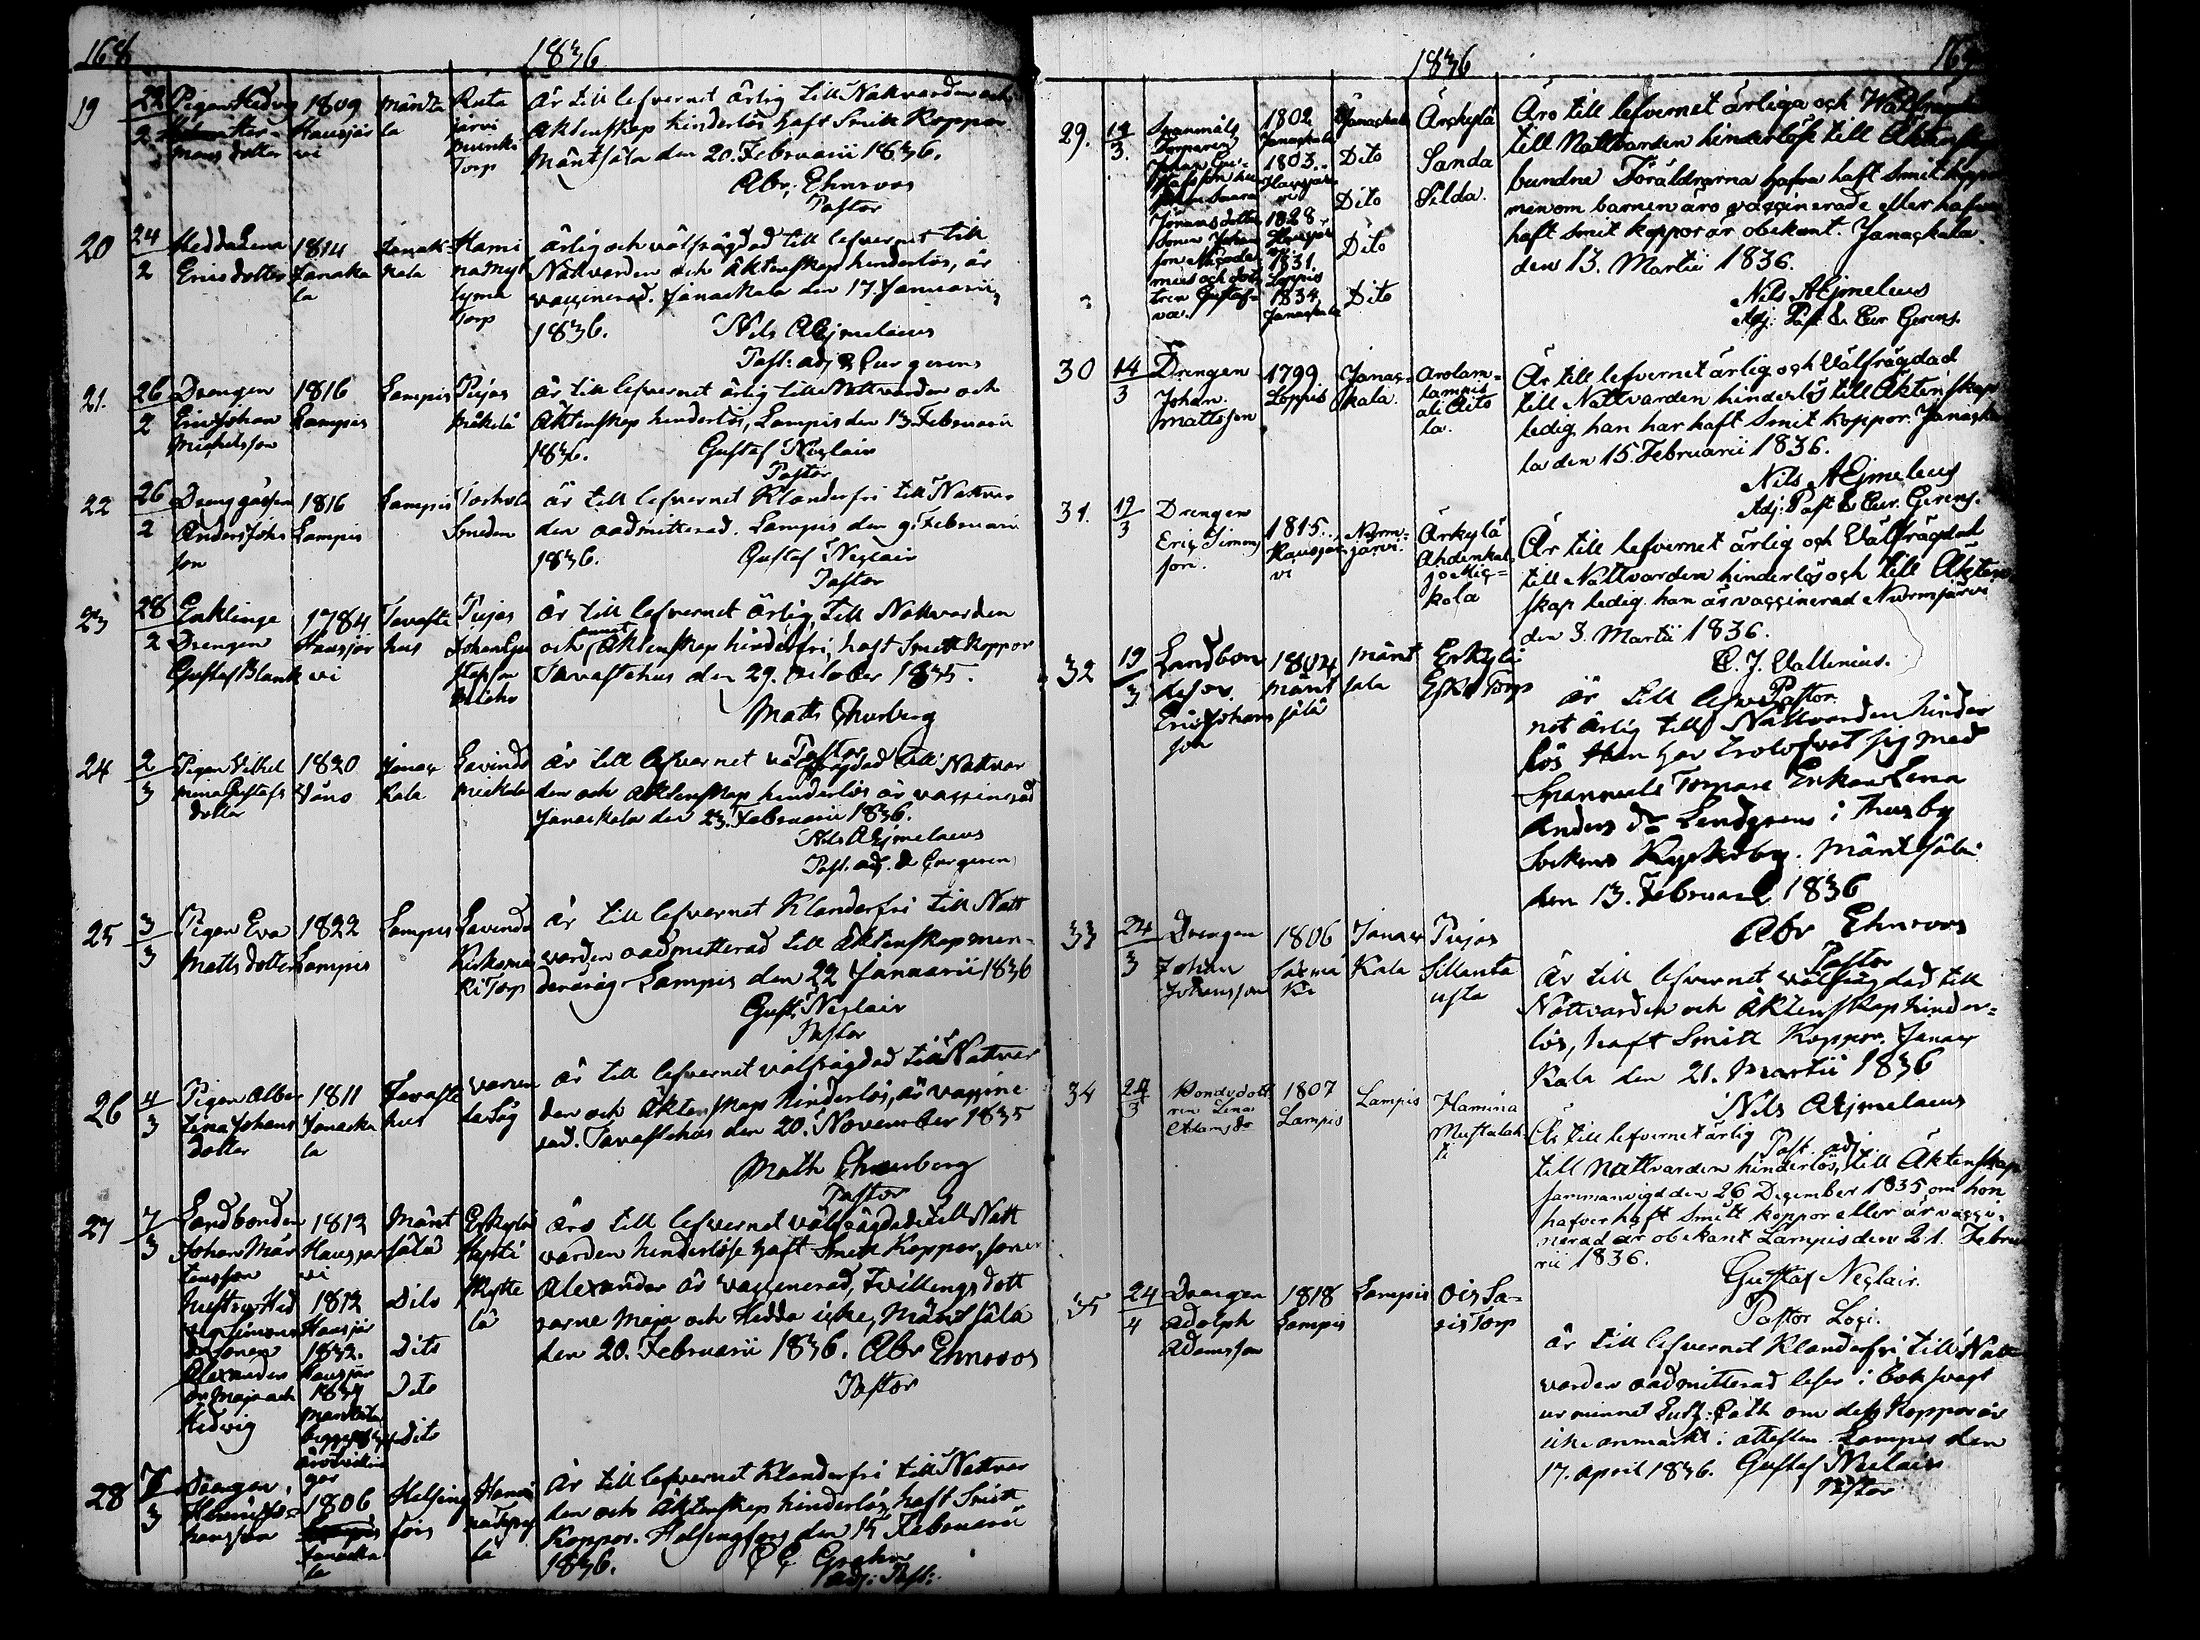 168
1836
19
22
2
Pigan Hedvig
Her-
mans dotter
1809
Hausjär
vi
Mäntsä
la
Ruta
järvi
Torp
är till lefvernet ärlig till Nattvarden och
Äktenskap hinderlös haft Smitt Koppor
Mäntsälä den 20. Februarii 1836.
Abr. Ehnroos
Pastor
20
24
2
Hedda Lena
Ericsdotter
1814
Janacka
la
Janak-
kala
Hami
na Myl
lymä
Torp
ärlig och välfrägdad till lefvernet till
Nattvarden och Äktenskap hinderlös, är
vaccinerad. Janackala den 17. Januarii
1836.
Nils AEjmelaeus
Past: adj & Cur gerens
21.
26
2
Drengen
Eric Johan
Michelsson
1816
Lampis
Lampis
Pujas
är till lefvernet ärlig till Nattvarden och
Äktenskap hinderlös, Lampis den 13. Februarii
1836.
Gustaf Neglair
Pastor
22
26
2
Dreng gåssen
Anders Johs
son
1816
Lampis
Lampis
Smeden
är till lefvernet Klanderfri till Nattvar
den oadmitterad. Lampis den 9. Februarii
1836.
Gustaf Neglair
Pastor
23
28
2
Enklinge
Drengen
Gustaf Blank
1784
Hausjär
vi
Tavaste
hus
Pujas
Johan Gu
stafsson
är till lefvernet ärlig, till Nattvarden
och Äktenskap hinderfri, haft Smitt koppor
Tavastehus den 29. October 1835.
Math Thurberg
Pastor
24
2
3
Pigan Vilhel
mina Gustafs
dotter
1820
Våno
Janac
kala
Lavinds
Mickola
är till lefvernet välfrägdad till Nattvar
den och Äktenskap hinderlös är vaccinerad
Janackala den 23. Februarii 1836.
Nils AEjmelaeus
Past. adj. & Cur geren
25
3
3
Pigan Eva
Matts dotter
1822
Lampis
Lampis
Lavinds
Kirkomä
ki Torp
är till lefvernet Klanderfri till Natt
varden oadmitterad till Äktenskap min-
derårig Lampis den 22 Januarii 1836
Gust. Neglair
Pastor
26
4
3
Pigan Alber
tina Johans
dotter
1811
Janacka
la
Tavaste
hus
är till lefvernet välfrägdad till Nattvar
den och Äktenskap hinderlös, är vaccine
rad. Tavastehus den 20. November 1835
Math Thurberg
Pastor
27
7
3
Landbonden
Johan Mår
tensson
Hustru Hed
vig Simons
dr sonen
Alexander
dr Maja och
Hedvig
1812
Hausjär
vi
1812
Hausjär
1832.
Hausjär
1834
Mäntsälä
begge
äro tvillin
gar
Mänt
sälä
Dito
Dito
Dito
Dito
Erkylä
Skytte
lä
äro till lefvernet välfrägdade till Natt
varden hinderlöse haft Smitt Koppor, sonen
Alexander är vaccinerad, tvillings dött
rarne Maja och Hedda icke, Mäntsälä
den 20. Februarii 1836. Abr Ehnroos
Pastor
28
7
3
Drengen
Henric Jo-
hansson
1806
Janacka
la
Helsing
fors
Hami
är till lefvernet Klanderfri till Nattvar
den och Äktenskap hinderlös haft Smitt
Koppor. Helsingfors den 15 Februarii
1836.
C C Grahn
adj: Past:
1836
29.
3.
Spanmåls
Torparen
Johan Gu-
stafsson hu
strun Maria
Jöransdotter
Sonen Johan
son Nicode
mus och dot
tren Gustaf-
va.
1802
Janackala
1803.
Hausjär
vi
1828
Hausjär
vi
1831.
Loppis
1834
Janackala
Janackala
Dito
Dito
Dito
Dito
Ärckylä
Sanda
Silda.
Äro till lefvernet ärliga och Välfrägda
till Nattvarden hinderlöse till Äktenskap
bundna Föräldrarna hafva haft Smitt koppor
men om barnen äro vaccinerade eller hafva
haft smit koppor är obekant. Janackala
den 13. Martii 1836.
Nils AEjmeleus
Adj: Past & Cur Gerens.
30
14
3
Drengen
Johan
Mattsson
1799
Loppis
Janac-
kala.
Arolam-
lampis
ali Aito
la.
Är till lefvernet ärlig och Välfrägdad
till Nattvarden hinderlös till Äktenskap
ledig han har haft Smit Koppor. Janacka
la den 15. Februarii 1836.
Nils AEjmeleus
Adj: Past & Cur. Gerens.
31.
19
3
Drengen
Eric Simons
son.
1815.
Hausjär
vi
Nurm-
järvi.
Ärkylä
Ahdenkal
jo Mic-
kola
Är till lefvernet ärlig och Välfrägdad
till Nattvarden hinderlös och till Äkten
skap ledig han är vaccinerad Nurmjärvi
den 3. Martii 1836.
C. J. Vallenius.
Pastor
32
19
3
Landbon
desson
Eric Johans
son
1804
Mänt
sälä
Mänt
sälä
Erkylä
Esko Torp
är till lefver
net ärlig till Nattvarden hinder
lös Han har trolofvat sig med
Spanmåls Torpare Enkan Lena
Anders dr Lendgren i Thusby
Sockens Kyrkoby. Mäntsälä
den 13. Februarii 1836
Abr Ehnroos
Pastor
33
24
3
Drengen
Johan
Johansson
1806
Saxmä
ki
Janac
kala
Pujas
Sillanta
usta
är till lefvernet välfrägdad till
Nattvarden och Äktenskap hinder-
lös, haft Smitt Koppor. Janac
kala den 21. Martii 1836
Nils AEjmelaeus
Past. adj
34
24
3
Bondedott
ren Lena
Adamsdr
1807
Lampis
Lampis
Hamina
Mustalah
ti
Är till lefvernet ärlig
till nattvarden hinderlös, till Äktenskap
sammanvigd den 26 December 1835 om hon
hafver haft Smitt koppor eller är vacci-
nerad är obekant Lampis den 21. Febru
rii 1836.
Gustaf Neglair.
Pastor Loci.
35
24
4
Drengen
Adolph
Adamsson
1818
Lampis
Lampis
Ois La-
ris Torp
är till lefvernet Klanderfri till Natt
varden oadmitterad läser i bok svagt
ur minnet Luth: Cath om dess Koppor är
icke anmärkt i attesten. Lampis den
17. April 1836. Gustaf Neglair
Pastor